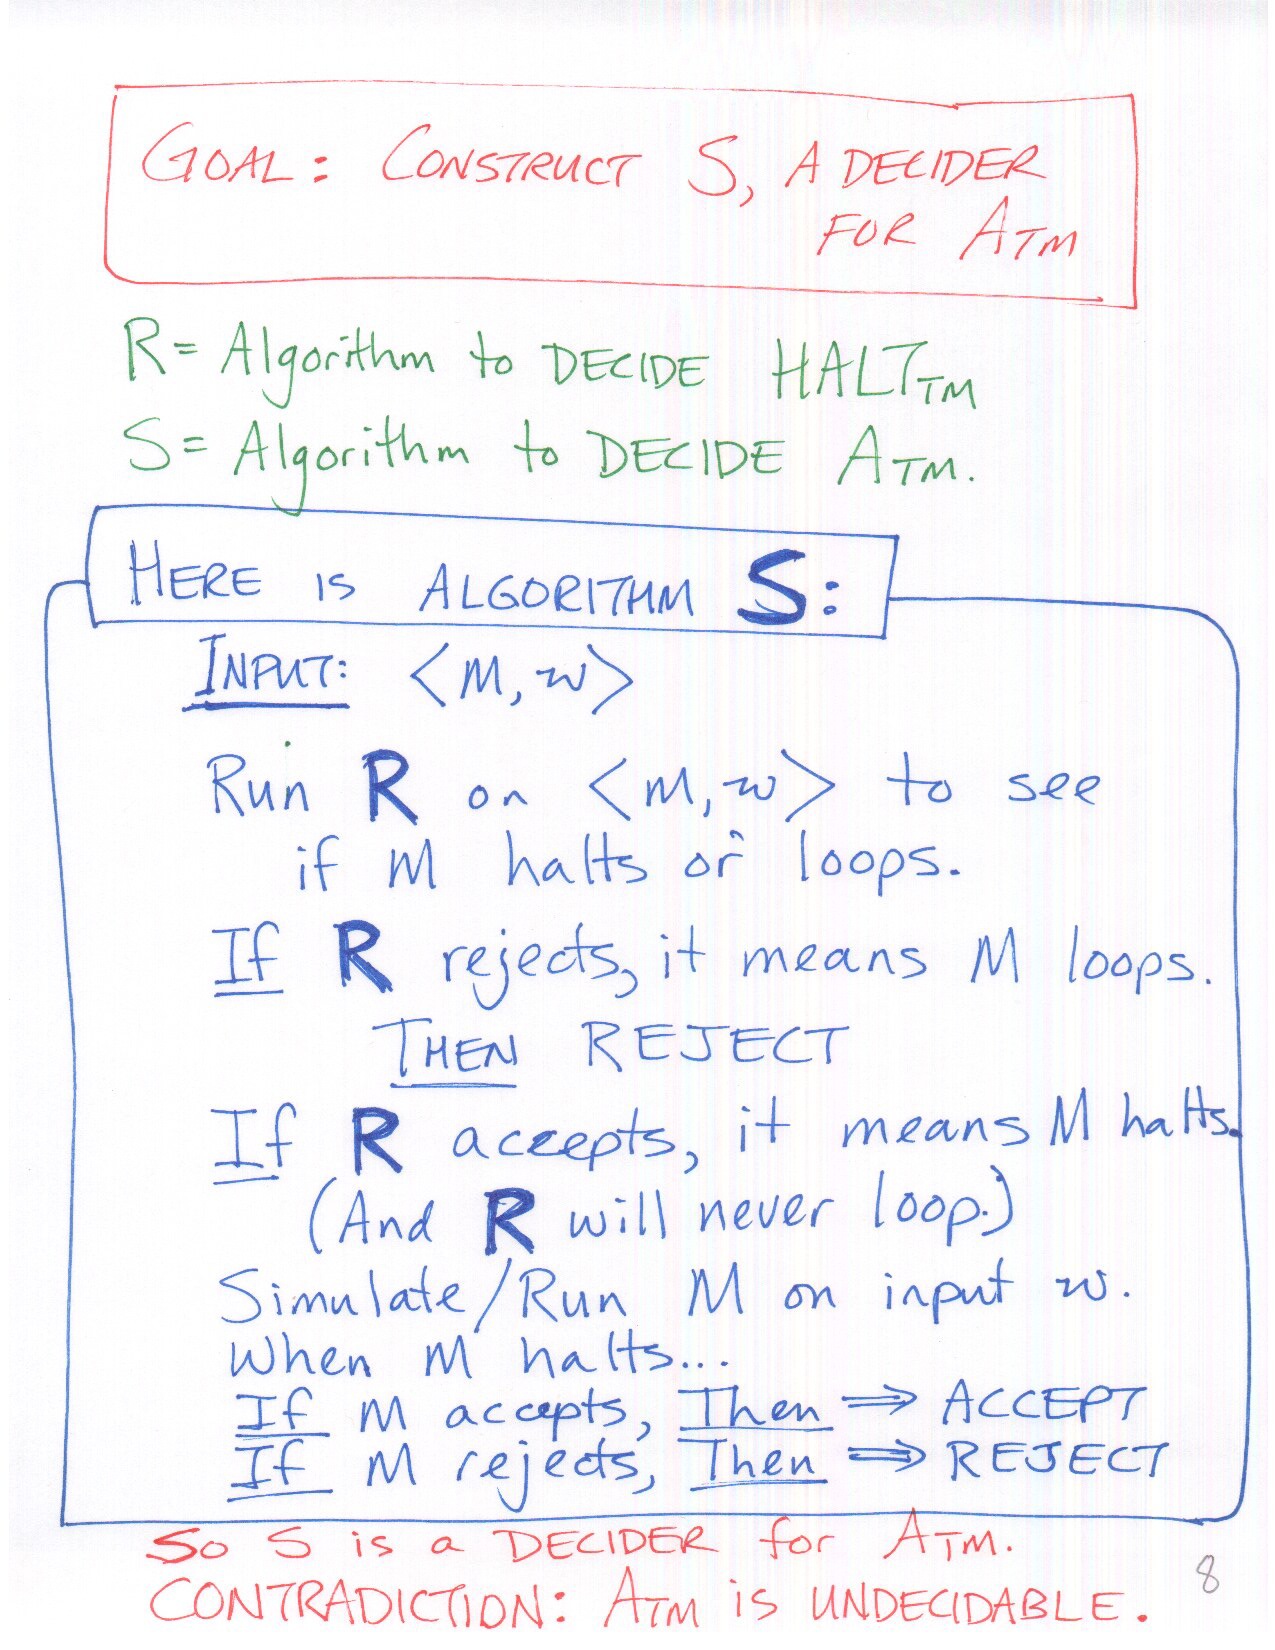 GOAL: CONSTRUCT S, A DECIDER
FOR ATM
R = Algorithm to DECIDE HALTTM
S = Algorithm to DECIDE ATM.
HERE IS ALGORITHM S:
INPUT: <M, w>
Run R on <M, w> to see
if M halts or loops.
If R rejects, it means M loops.
THEN REJECT
If R accepts, it means M halts.
(And R will never loop.)
Simulate/Run M on input w.
When M halts...
If M accepts, Then ⇒ ACCEPT
If M rejects, Then ⇒ REJECT
So S is a DECIDER for ATM.
CONTRADICTION: ATM is UNDECIDABLE.
8